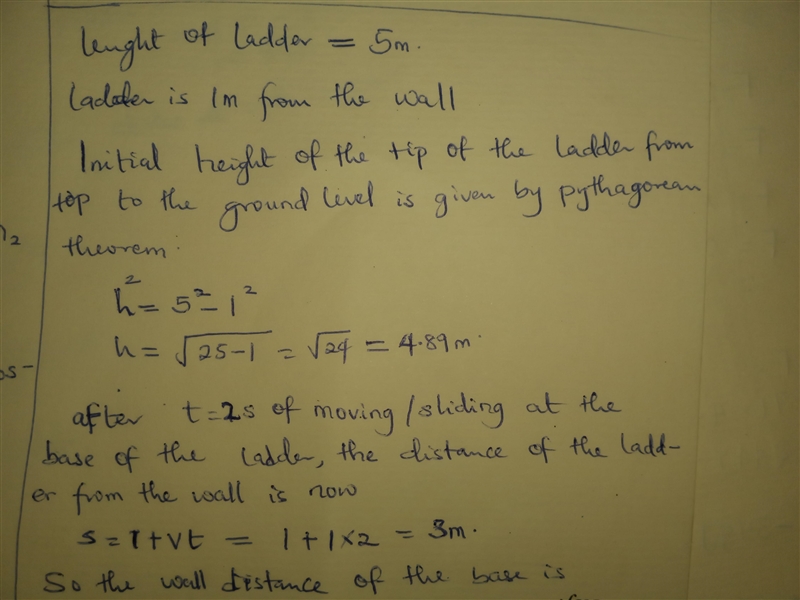 lenght of ladder = 5m.
Ladder is 1m from the wall
Initial height of the tip of the ladder from
top to the ground level is given by pythagorean
theorem:
h² = 5² - 1²
h = √25-1 = √24 = 4.89m.
after t=2s of moving/sliding at the
base of the ladder, the distance of the ladd-
er from the wall is now
s = 1+vt = 1+1×2 = 3m.
So the wall distance of the base is